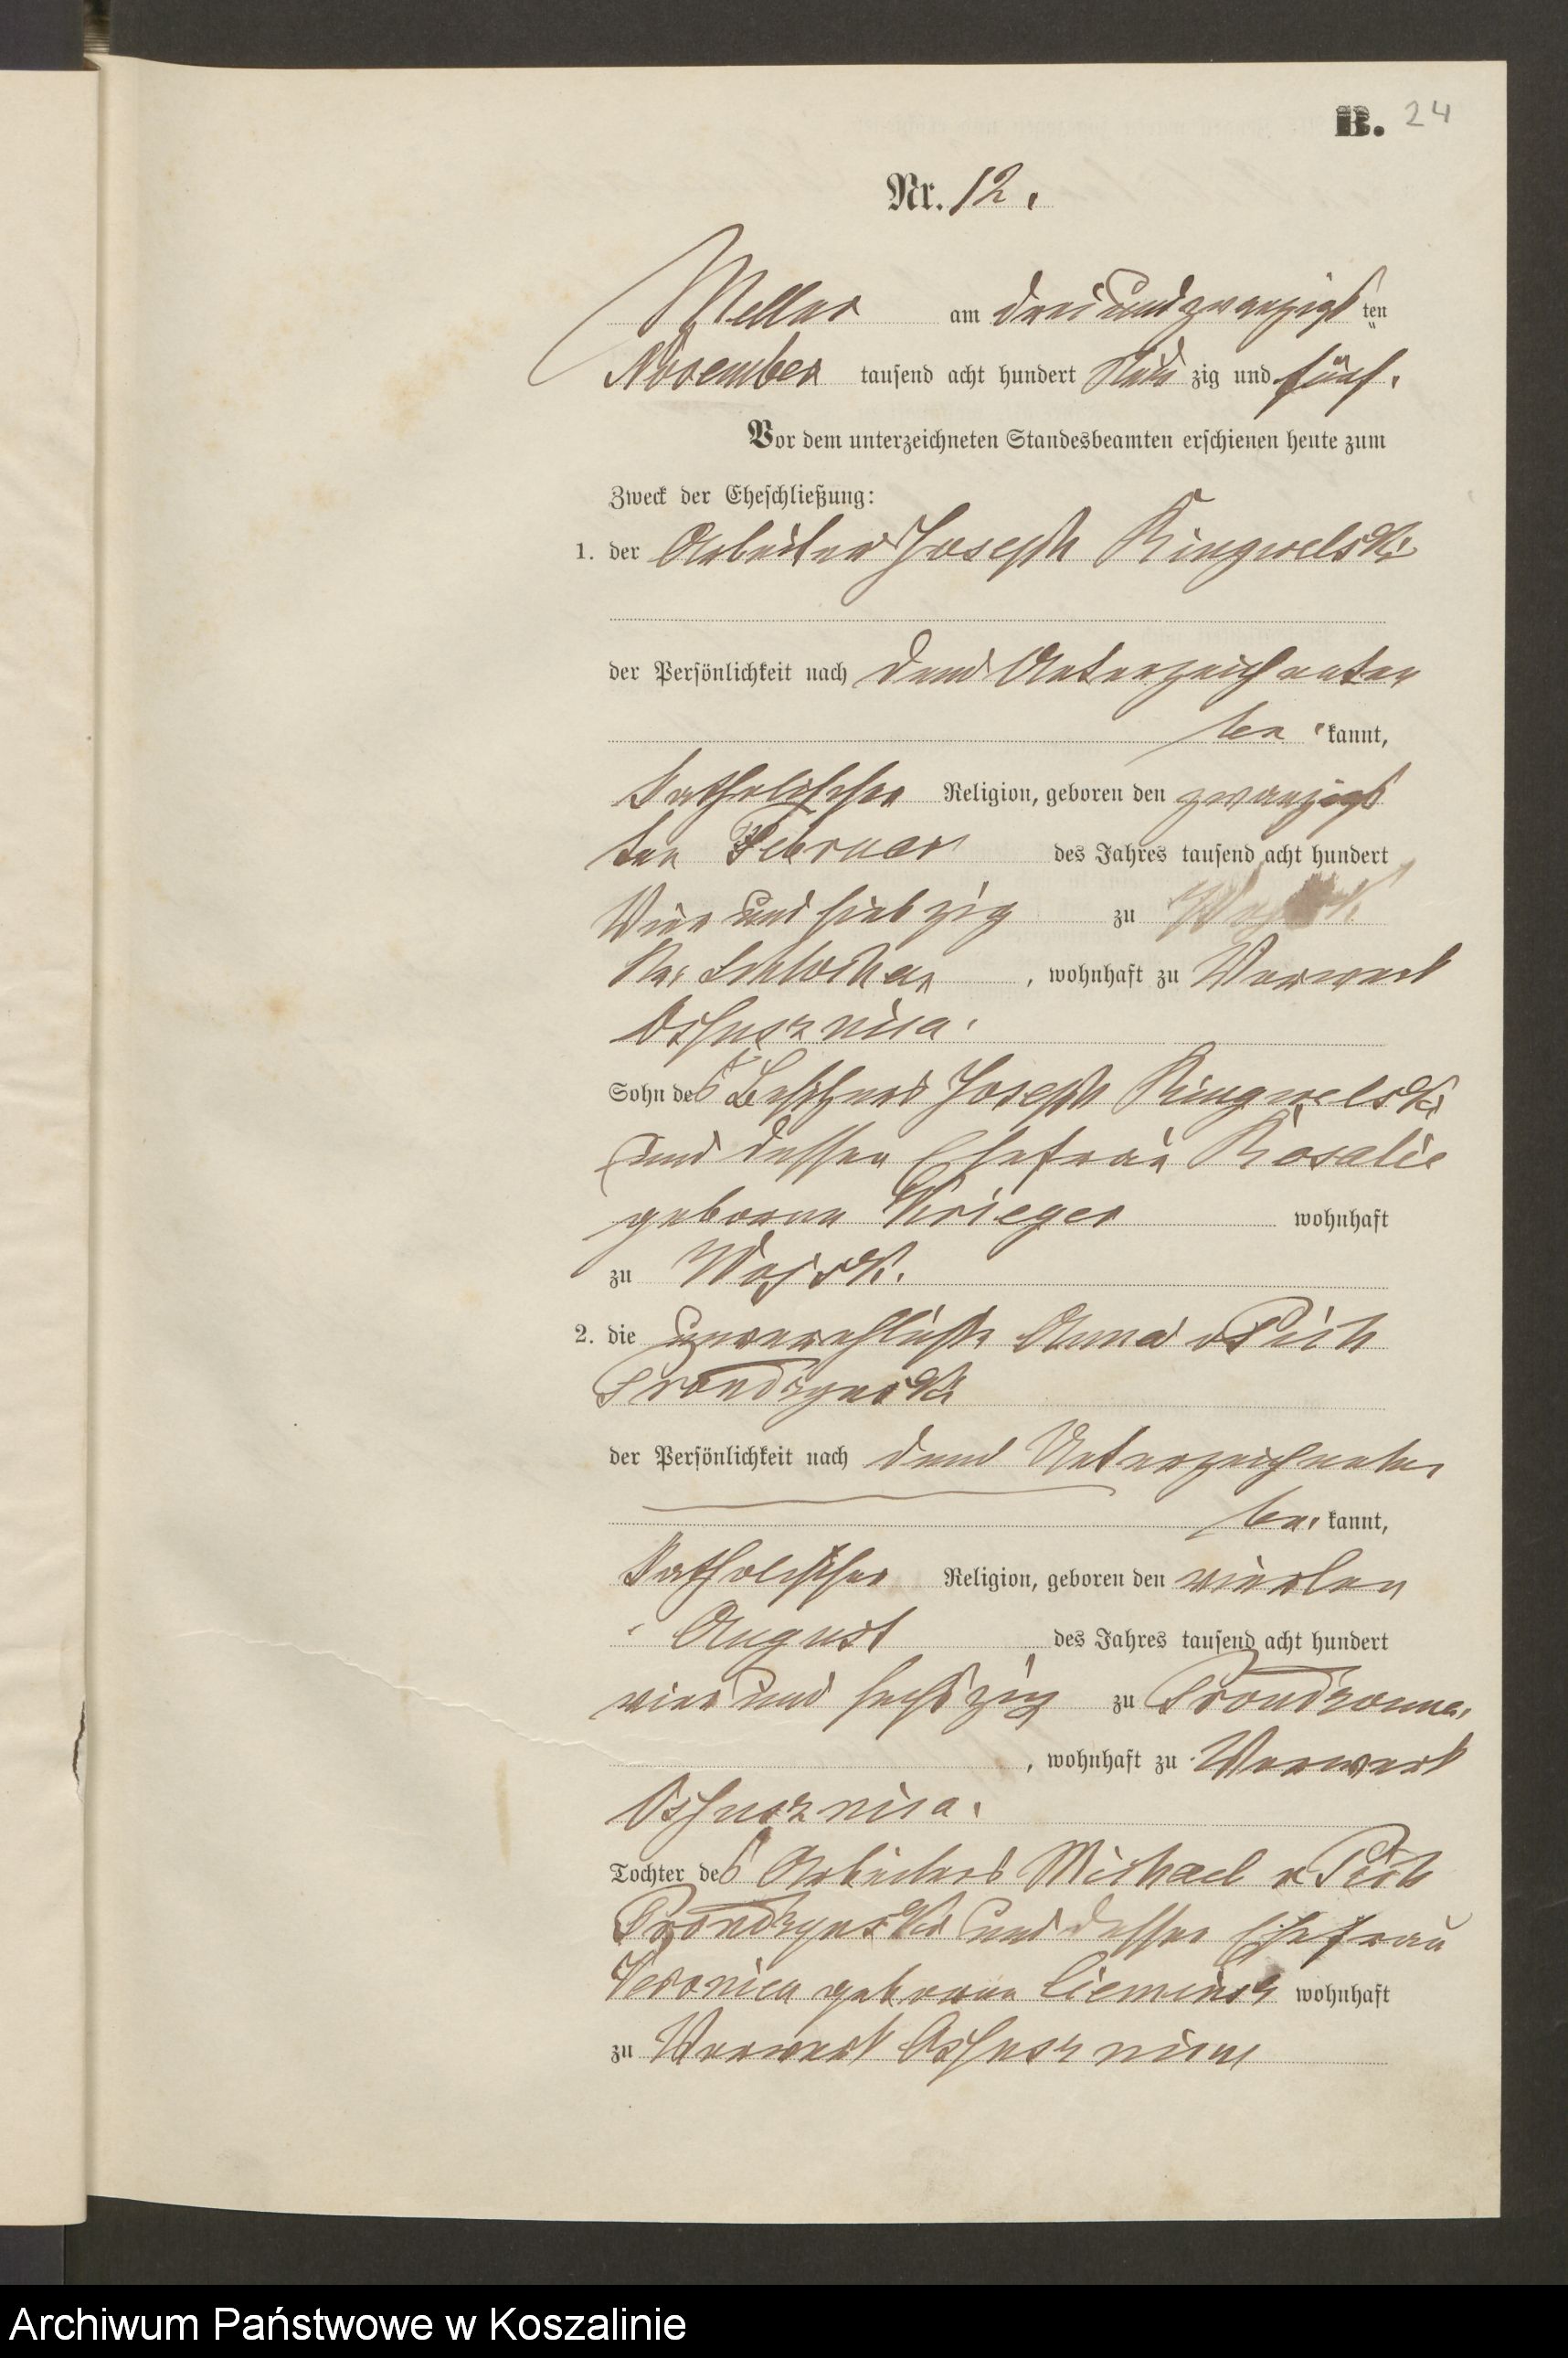 B. 24
Nr. 12.
Mellno am dreiundzwanzigsten
November tausend acht hundert Neunzig und fünf.
Vor dem unterzeichneten Standesbeamten erschienen heute zum
Zweck der Eheschließung:
1. der Arbeiter Joseph Ringwelski
der Persönlichkeit nach dem Unterzeichneten
be kannt,
katholischer Religion, geboren den zwanzigs
ten Februar des Jahres tausend acht hundert
Vier und siebzig zu
Kr. Schlochau, wohnhaft zu Vorwerk
Sohn des Besitzers Joseph Ringwelski
und dessen Ehefrau Rosalie
geborene Krieger wohnhaft
zu
2. die unverehelichte Anna v Pich
Prondzynski
der Persönlichkeit nach dem Unterzeichneten
be kannt,
katholischer Religion, geboren den vierten
August des Jahres tausend acht hundert
vier und sechszig zu Prondzonna,
, wohnhaft zu Vorwerk
Tochter des Arbeiters Michael v Pich
Prondzynski und dessen Ehefrau
Veronica geborene wohnhaft
zu Vorwerk
Archiwum Państwowe w Koszalinie